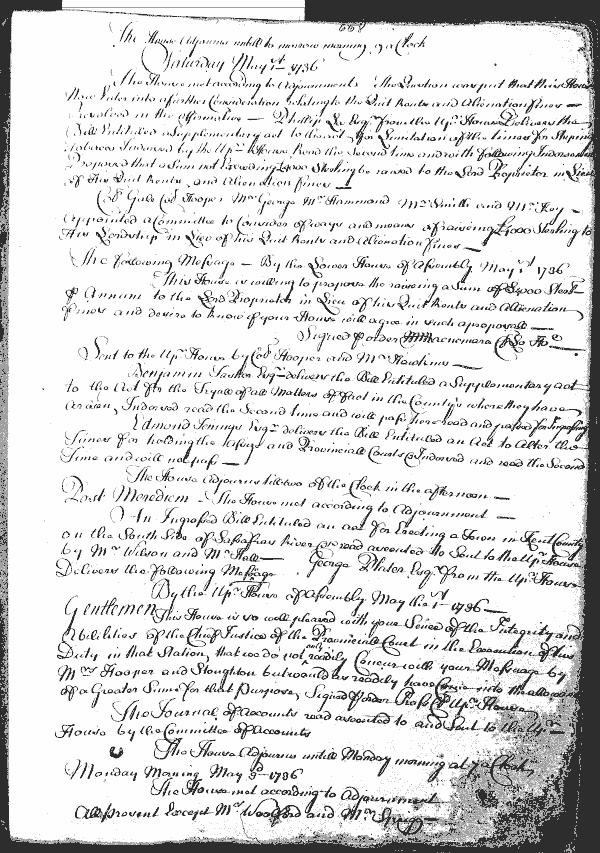 668
The House Adjourns untill to morrow morning 9 a Clock
Saturday May 1st 1736
The House met according to Adjournment The Question was put that this House
Now Enter into a further Consideration relating to the Quit Rents and Alienation fines
Resolved in the Affirmative Phillip Lee Esqr from the Upr House Delivers the
Bill Entituled a Supplementary act to the act for Limitation of the times for Shiping
Tobaccos Indorsed by the Upr House Read the Second time and with following Indorsement
Proposed that a Sum not Exceeding £4000 Sterling be raised to the Lord Proprietor in Lieu
of His Quit Rents and Alienation fines
Col Gale Col Hooper Mr George Mr Hammond Mr Smith and Mr Hoy
Appointed a Committee to Consider of ways and means of raising £4000 Sterling to
His Lordship in Lieu of his Quit Rents and Alienation fines
The following Message By the Lower House of Assembly May 1st 1736
This House is willing to propose the raising a Sum of £4000 Sterl
P Annum to the Lord Proprietor in Lieu of his Quit Rents and Alienation
fines and desire to know if your House will agree in such a proposall
Signed P order Macnemara Cl Lo Ho
Sent to the Upr House by Col Hooper and Mr Hawkins
Benjamin Tasker Esqr delivers the Bill Entituled a Supplementary act
to the Act for the Tryall of all Matters of fact in the Countys where they have
Arisen, Indorsed read the Second time and will pass here read and passed for Ingrossing
Edmond Jenings Esqr delivers the Bill Entituled an Act to Alter the
times for holding the Assize and Provinciall Courts Indorsed and read the Second
time and will not pass
The House Adjourns till two of the Clock in the afternoon
Post Meredien The House met according to Adjournment
An Ingrossed Bill Entituled an act for Erecting a Town in Kent County
on the South Side of Sassafras River read assented to Sent to the Upr House
by Mr Wilson and Mr Hall George Plater Esqr from the Upr House
Delivers the following Message
By the Upr House of Assembly May the 1st 1736
Gentlemen This House is so well pleased with your Sence of the Integrity and
Abilities of the Chief Justice of the Provinciall Court in the Execution of his
Duty in that Station, that we do not only readily Concur with your Message by
Mrs Hooper and Stoughton but would as readily have Come into the allowance
of a Greater Sume for that purpose, Signed P order Ross Cl Upr House
The Journal of Accounts read assented to and Sent to the Upr
House by the Committee of Accounts
The House Adjourns untill Monday morning at 7 a Clock
Monday Morning May 3d 1736
The House met according to Adjournment
All present Except Mr Woodford and Mr Sprigg